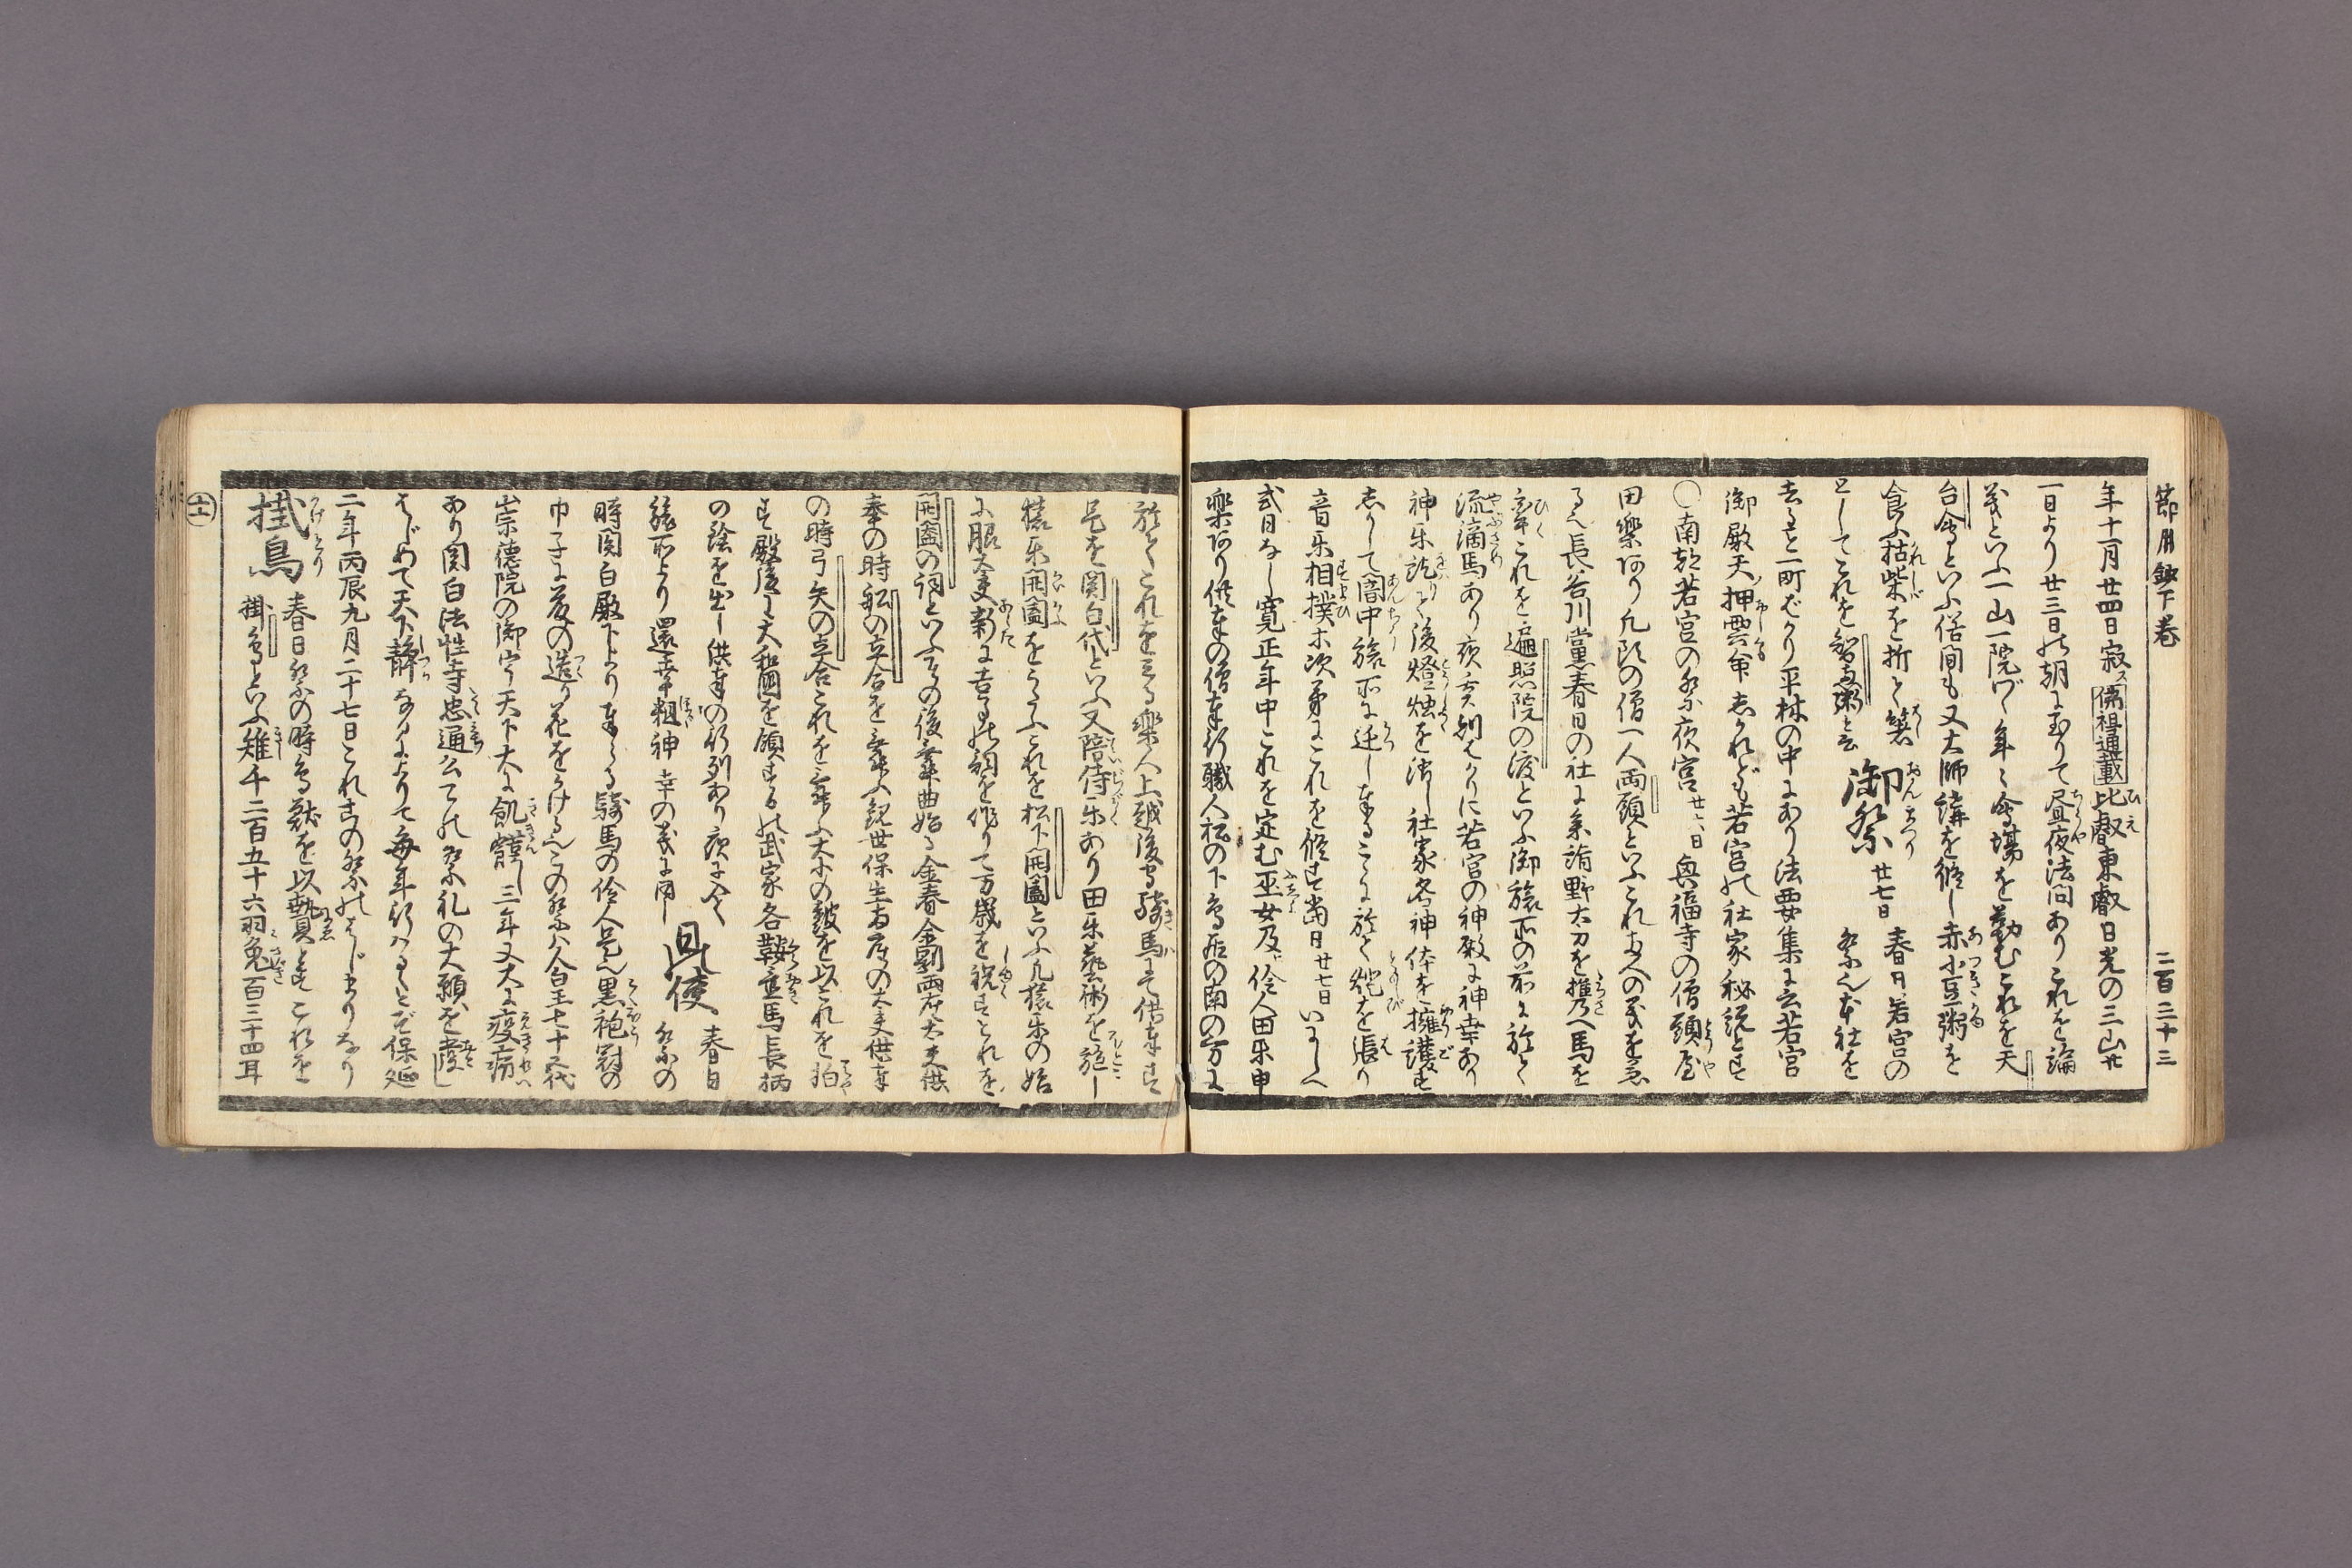 節用鈔下巻　二百三十三
年十一月廿四日寂ス佛祖通載比叡東叡日光の三山廿
一日より廿三日の朝に至りて昼夜法問ありこれを論
義といふ一山一院づゝ年々會場を勤むこれを天
台會といふ俗間も又大師講を修し赤小豆粥を
食ふ枯柴を折て箸
としてこれを智恵粥と云
御祭
廿七日　春日若宮の
祭也本社を
去こと一町ばかり平林の中にあり法要集に云若宮
御殿天押雲命しかれども若宮の社家秘説とす
○南都若宮の祭夜宮廿六日興福寺の僧頭屋
田樂あり凡頭の僧一人両頭といふこれ両人の義を兼
る也長谷川黨春日の社に参詣野太刀を携へ馬を
牽これを遍照院の渡といふ御旅所の前に於て
流滴馬あり夜亥刻ばかりに若宮の神殿に神幸あり
神乐訖りて後燈燭を消し社家各神体を擁護す
しかして闇中旅所に迁し奉るこゝに於て炬を張り
音乐相撲木次第にこれを修す當日廿七日いにしへ
式日なし寛正年中これを定む巫女及伶人田乐申
樂あり供奉の僧奉行職人松の下鳥居の南の方に
於てこれを見る樂人上越後守騎馬にて供奉す
是を関白代といふ又陪侍乐あり田乐藝術を施し
猿乐開闔をうたふこれを松下開闔といふ凡猿乐の始
に服大夫新に吉の詞を作りて万歳を祝すこれを
開闔の詞といふその後舞曲始る金春金剛両座大夫供
奉の時舩の立合を舞ふ観世保生両座の大夫供奉
の時弓矢の立合これを舞ふ大小の皷を以これを拍
す殿後に大和國を領するの武家各鞍置馬長柄
の鎗を出し供奉の行列あり夜に入て
旅所より還幸粗神幸の義に同し
日使
春日
祭の
時関白殿下より奉る騎馬の伶人是也黒袍冠の
巾子に藤の造り花をかける也この祭ハ人皇七十五代
崇徳院の御宇天下大に飢饉し三年又大に疫病
あり関白法性寺忠通公てれ祭礼の大願を發し
はじめて天下静なるによりて毎年行ハるゝとぞ保延
二年丙辰九月二十七日これこの祭のはじまりなり
掛鳥
春日祭の時鳥獣を以贄とすこれを
掛鳥といふ雉千二百五十六羽兔百三十四耳
十一